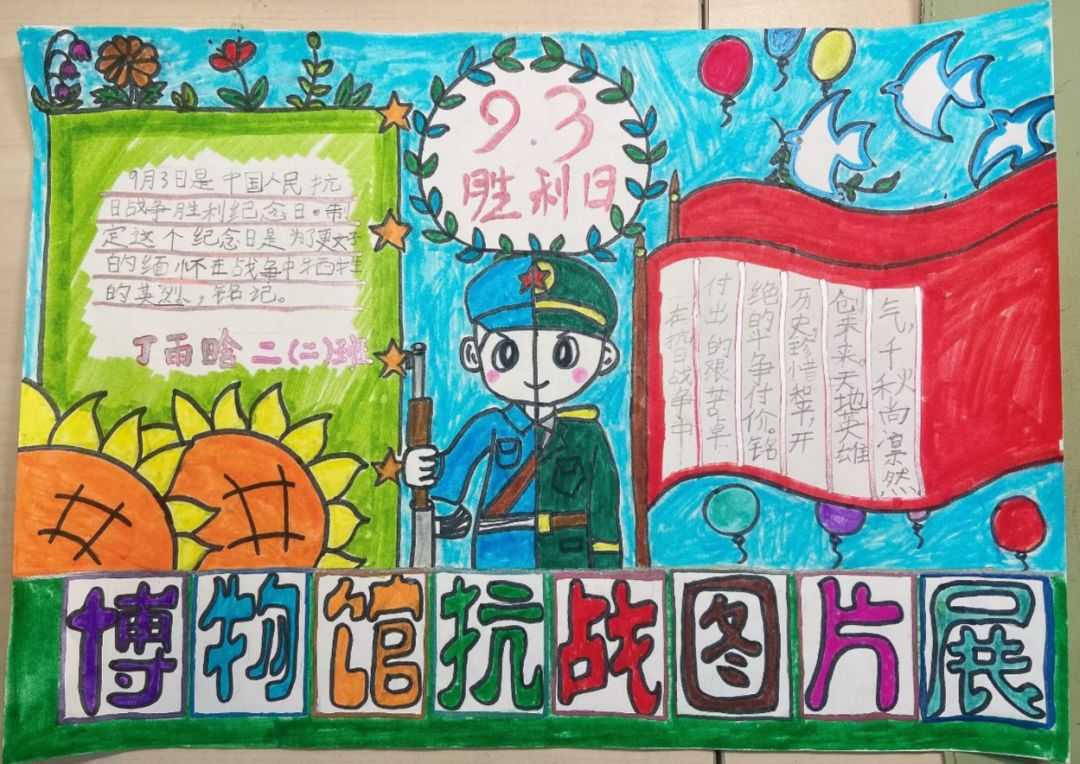 9.3
胜利日
9月3日是中国人民抗
日战争胜利纪念日。制
定这个纪念日是为了更好
的缅怀在战争中牺牲
的英烈，铭记。
丁雨晗 二(二)班
在抗日战争中
付出的艰苦卓
绝的斗争付价。铭
历史,珍惜和平,开
创未来。天地英雄
气,千秋尚凛然
博物馆抗战图片展